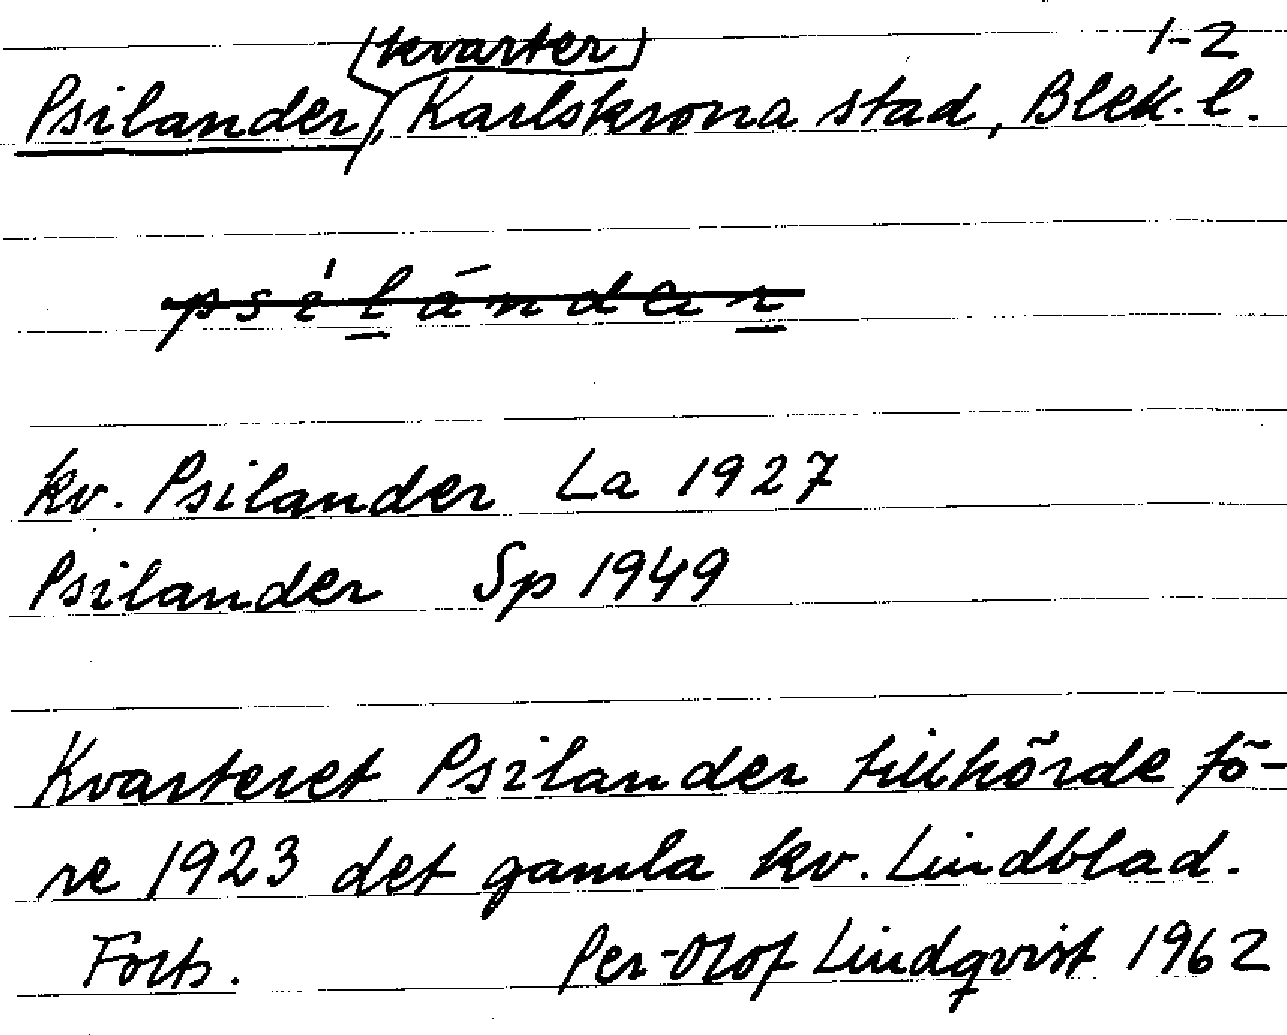 (kvarter) 1-2
Psilander, Karlskrona stad, Blek. l.
psilánder
kv. Psilander La 1927
Psilander Sp 1949
Kvarteret Psilander tillhörde fö-
re 1923 det gamla kv. Lindblad.
Forts. Per-Olof Lindqvist 1962